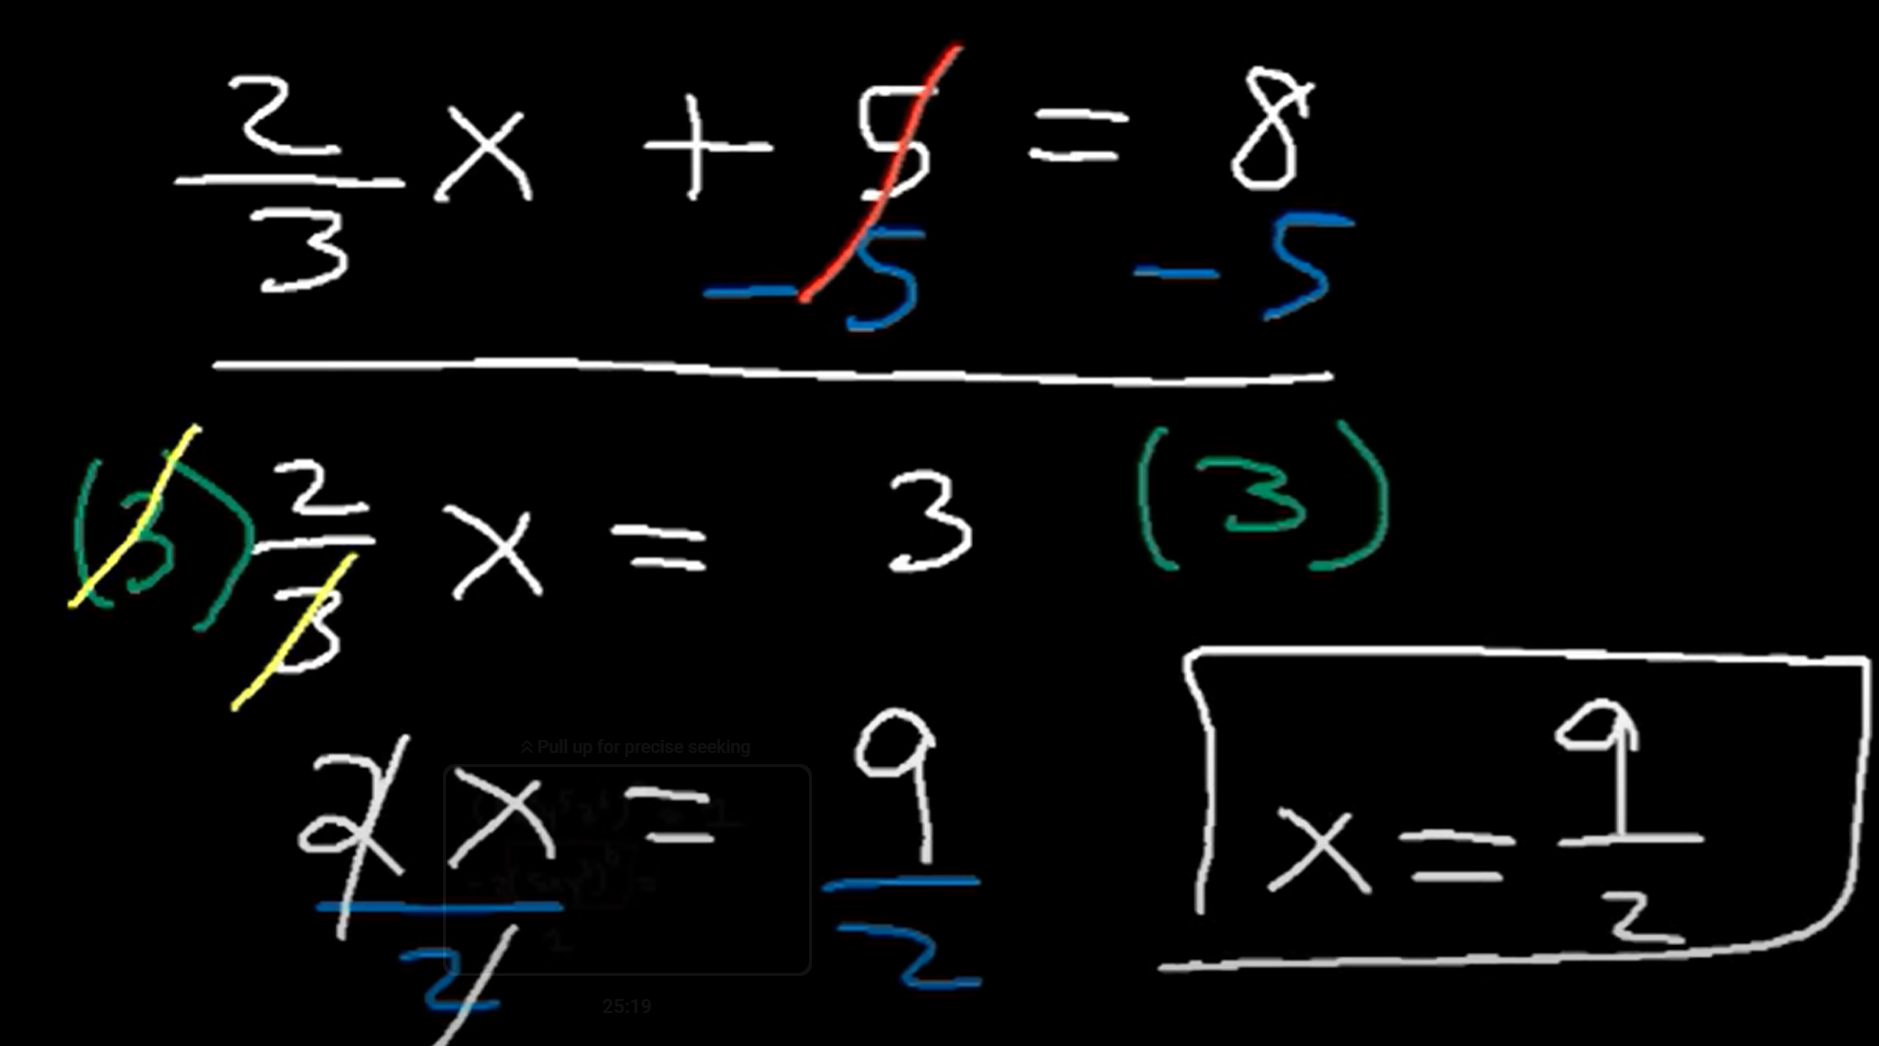 2/3 x + 5 = 8
- 5 - 5
(3) 2/3 x = 3 (3)
2x/2 = 9/2
x = 9/2
Pull up for precise seeking
25:19